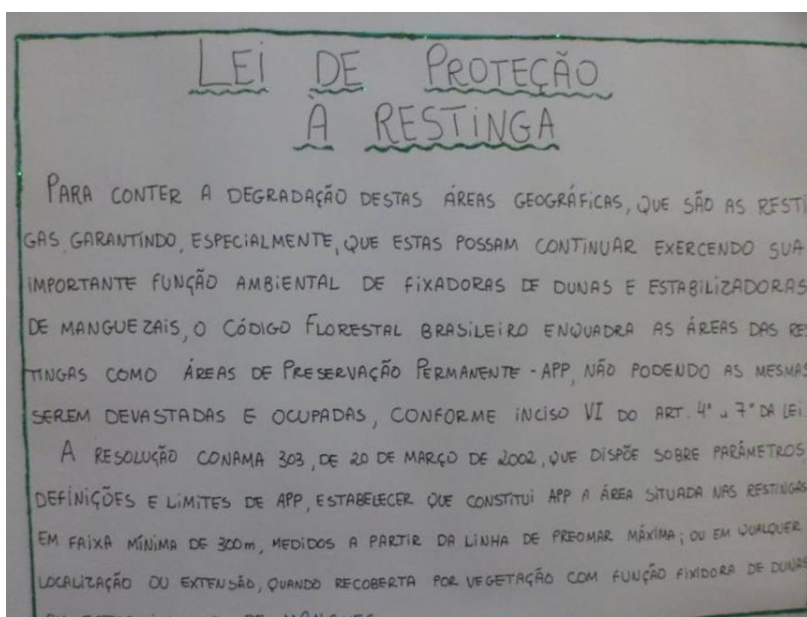 LEI DE PROTEÇÃO
À RESTINGA
PARA CONTER A DEGRADAÇÃO DESTAS ÁREAS GEOGRÁFICAS, QUE SÃO AS RESTI
GAS, GARANTINDO, ESPECIALMENTE, QUE ESTAS POSSAM CONTINUAR EXERCENDO SUA
IMPORTANTE FUNÇÃO AMBIENTAL DE FIXADORAS DE DUNAS E ESTABILIZADORAS
DE MANGUEZAIS, O CÓDIGO FLORESTAL BRASILEIRO ENQUADRA AS ÁREAS DAS RES
TINGAS COMO ÁREAS DE PRESERVAÇÃO PERMANENTE - APP, NÃO PODENDO AS MESMAS
SEREM DEVASTADAS E OCUPADAS, CONFORME INCISO VI DO ART. 4° 7° DA LEI.
A RESOLUÇÃO CONAMA 303, DE 20 DE MARÇO DE 2002, QUE DISPÕE SOBRE PARÂMETROS,
DEFINIÇÕES E LIMITES DE APP, ESTABELECER QUE CONSTITUI APP A ÁREA SITUADA NAS RESTINGAS
EM FAIXA MÍNIMA DE 300m, MEDIDOS A PARTIR DA LINHA DE PREOMAR MÁXIMA; OU EM QUALQUER
LOCALIZAÇÃO OU EXTENSÃO, QUANDO RECOBERTA POR VEGETAÇÃO COM FUNÇÃO FIXIDORA DE DUNAS
DE MANGUES